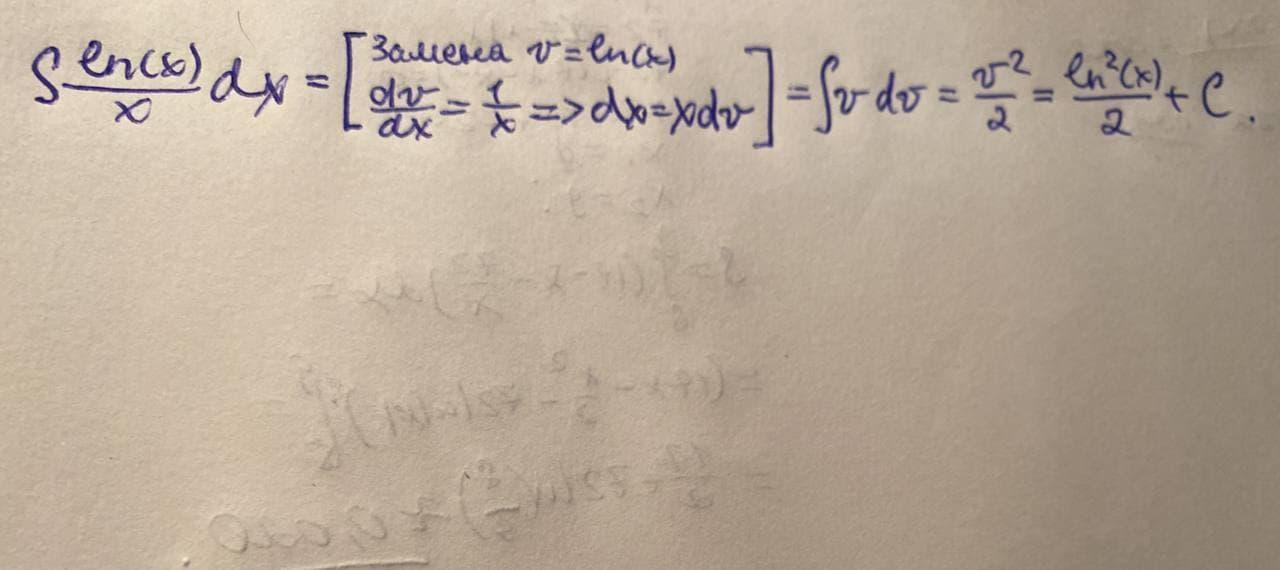 ∫ ln(x)/x dx = [Замена v = ln(x) dv/dx = 1/x => dx = xdv] = ∫ v dv = v²/2 = ln²(x)/2 + C.